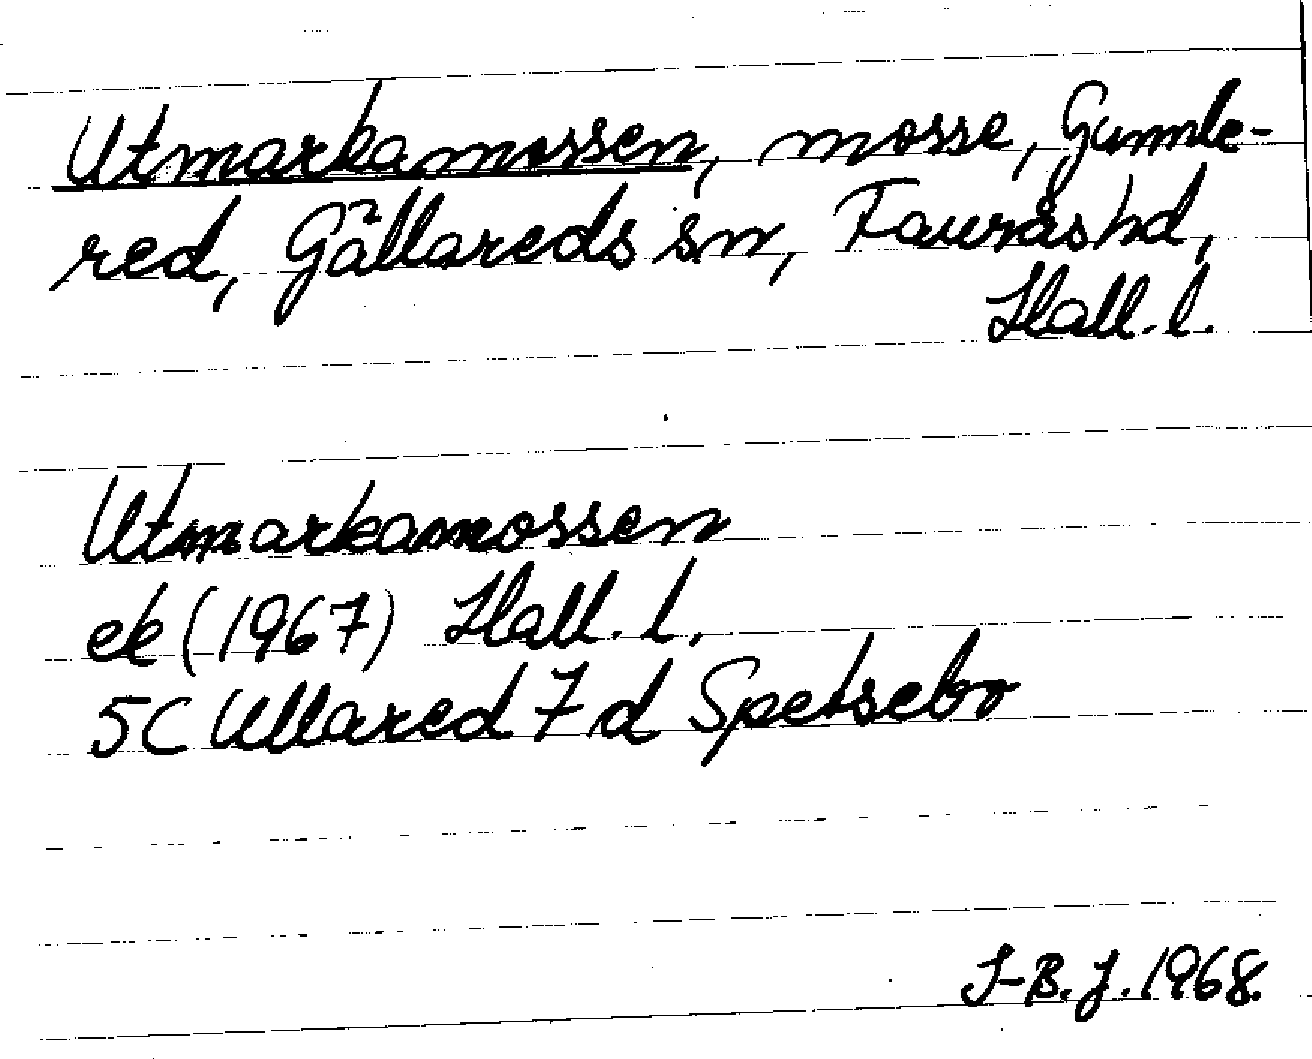 Utmarkamossen, mosse, Gunnle-
red, Gällareds sn, Faurås hd,
Hall. l.
Utmarkamossen
ek (1967) Hall. l.
5C Ullared 7 d Spetsebo
J-B. J. 1968.